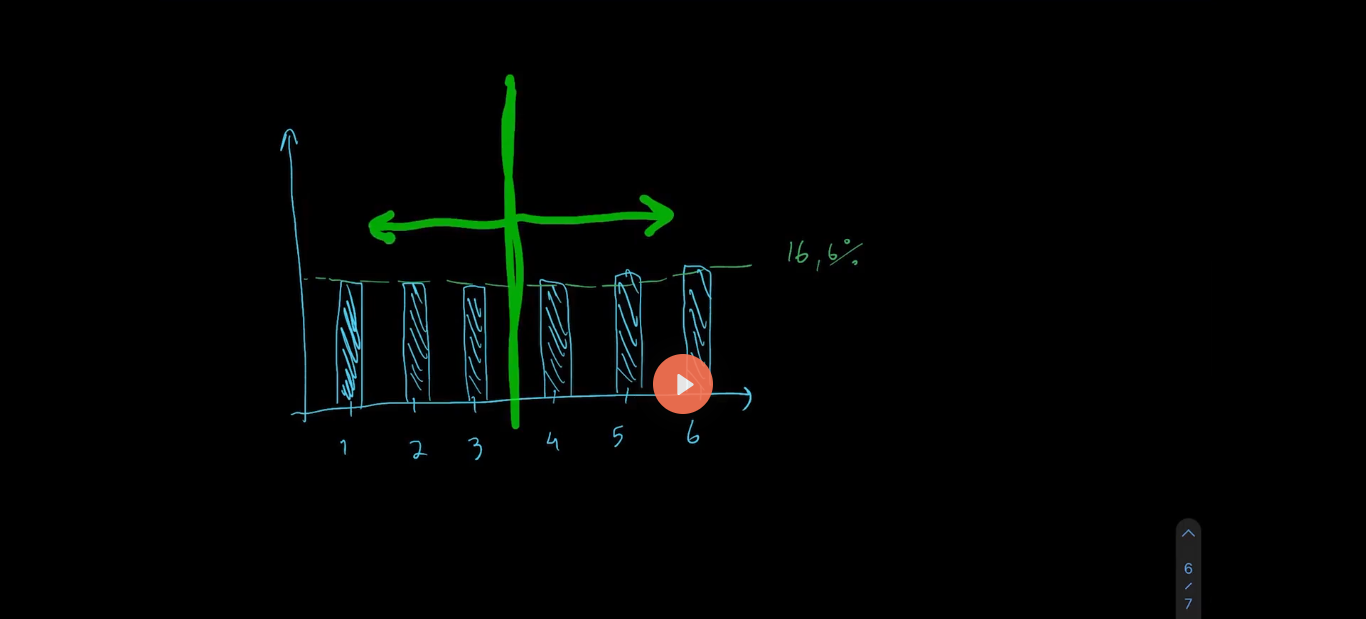 16,6%
1 2 3 4 5 6
6
/
7